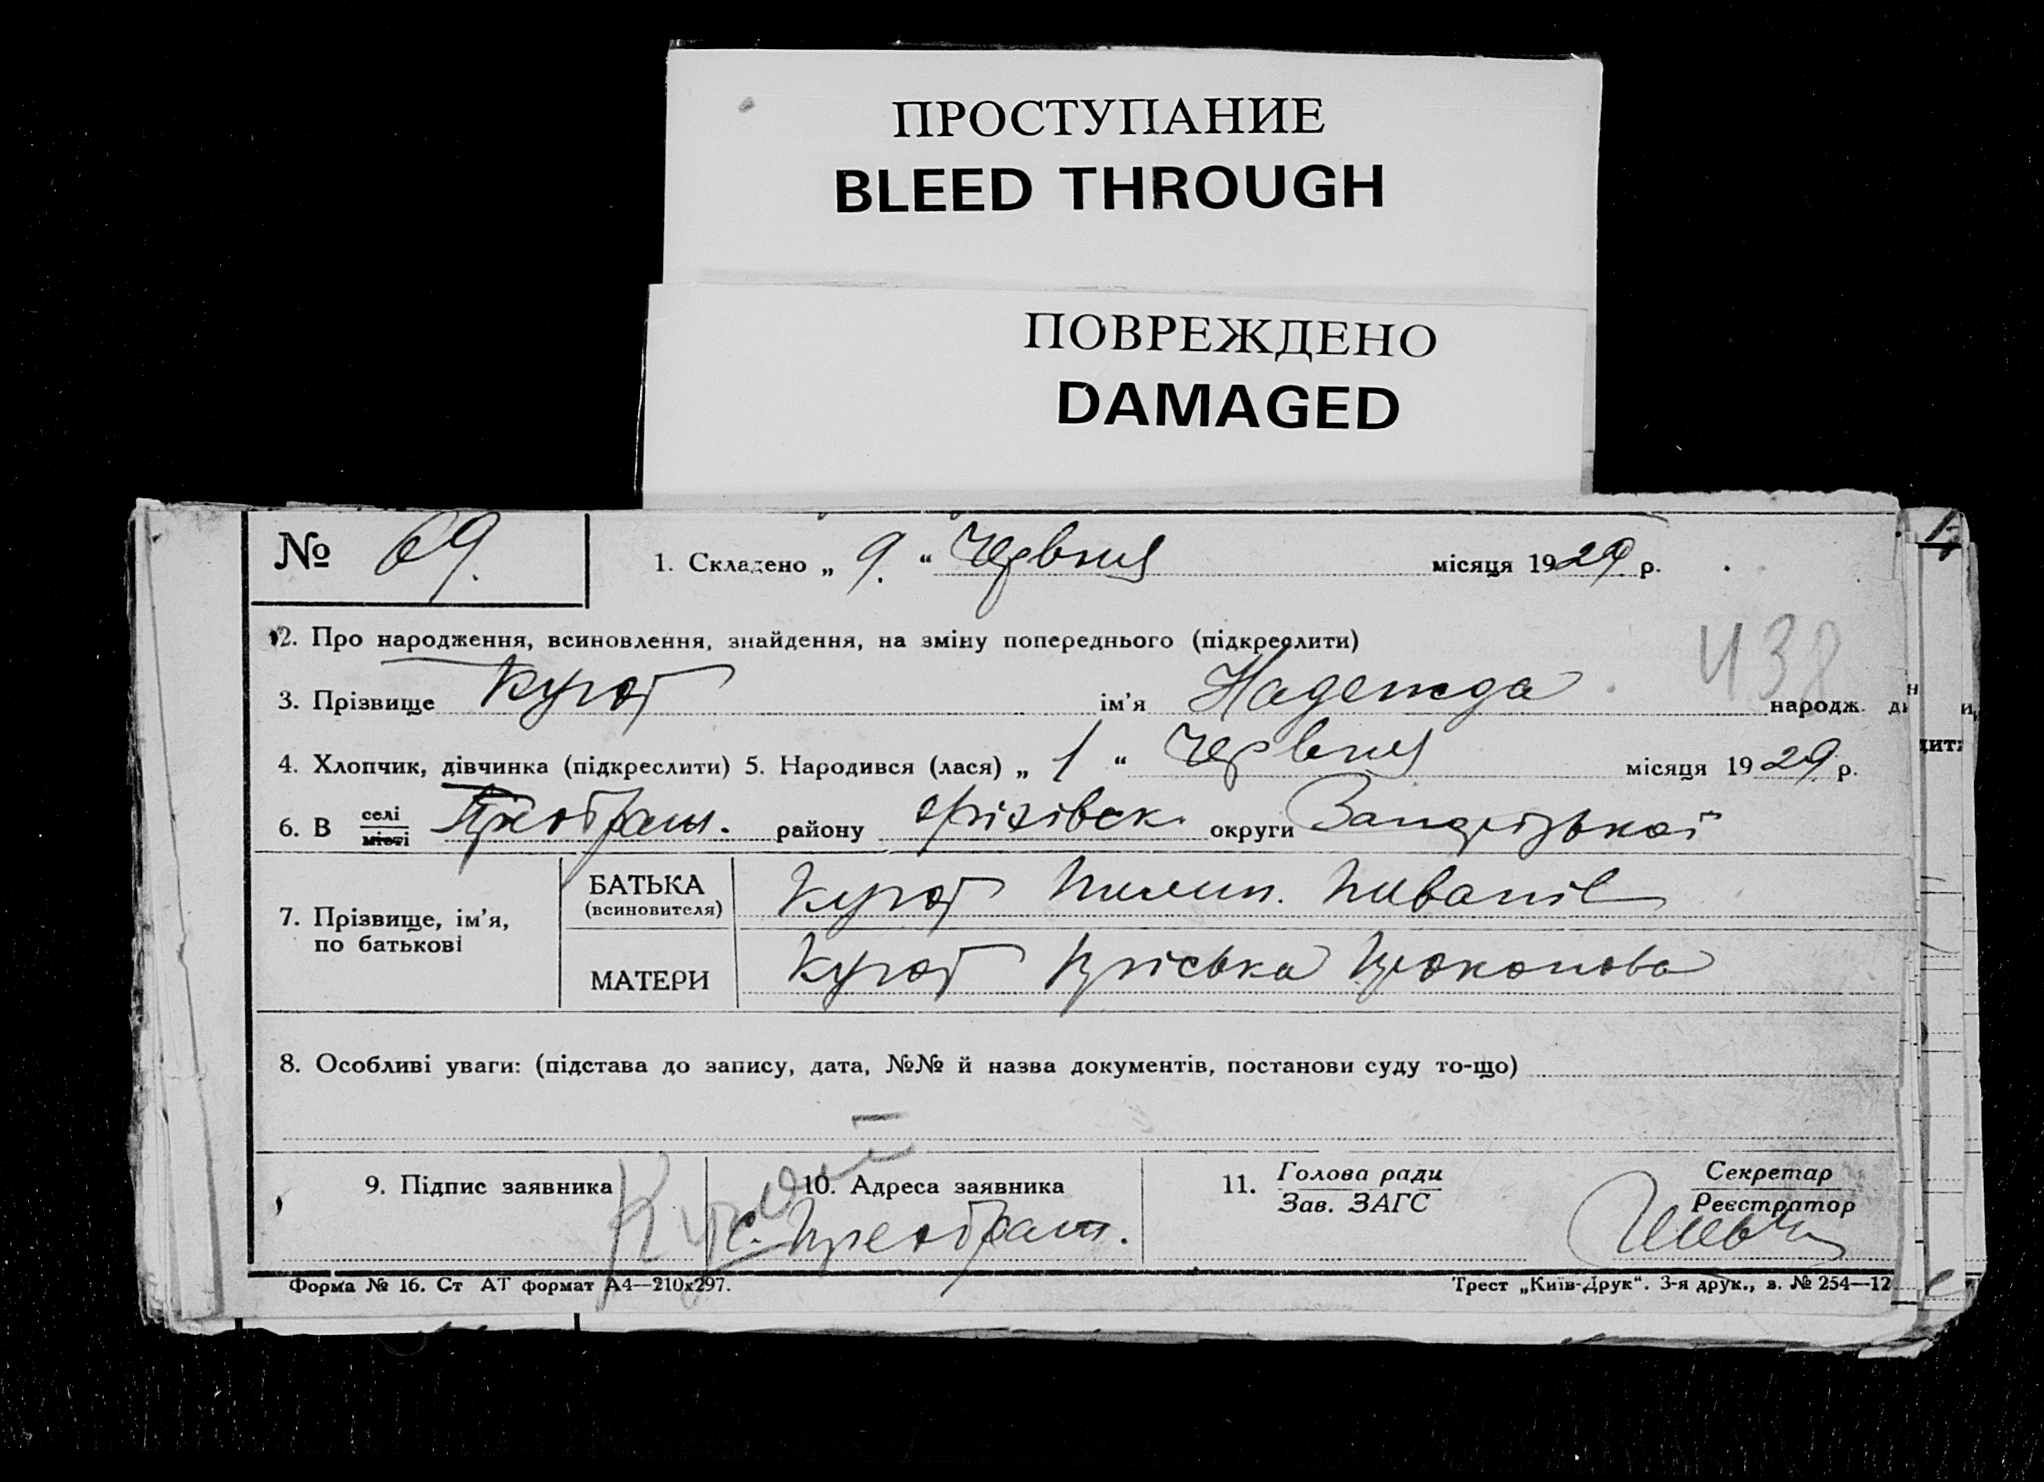 ПРОСТУПАНИЕ
BLEED THROUGH
ПОВРЕЖДЕНО
DAMAGED
№ 69. 1. Складено „ 9. “ Червня місяця 1929 р.
2. Про народження, всиновлення, знайдення, на зміну попереднього (підкреслити)
438
3. Прізвище ім’я Надежда народж.
4. Хлопчик, дівчинка (підкреслити) 5. Народився (лася) „ 1 “ Червня місяця 1929 р.
6. В селі місті Преображ. району округи Запорізької
7. Прізвище, ім’я, по батькові
БАТЬКА (всиновителя) Пилип.
МАТЕРИ Пріська Прокопова
8. Особливі уваги: (підстава до запису, дата, №№ й назва документів, постанови суду то-що)
9. Підпис заявника 10. Адреса заявника 11. Голова ради Зав. ЗАГС Секретар Реєстратор
с. Преображ.
Форма № 16. Ст АТ формат А4—210х297. Трест „Київ-Друк“. 3-я друк., з. № 254—12